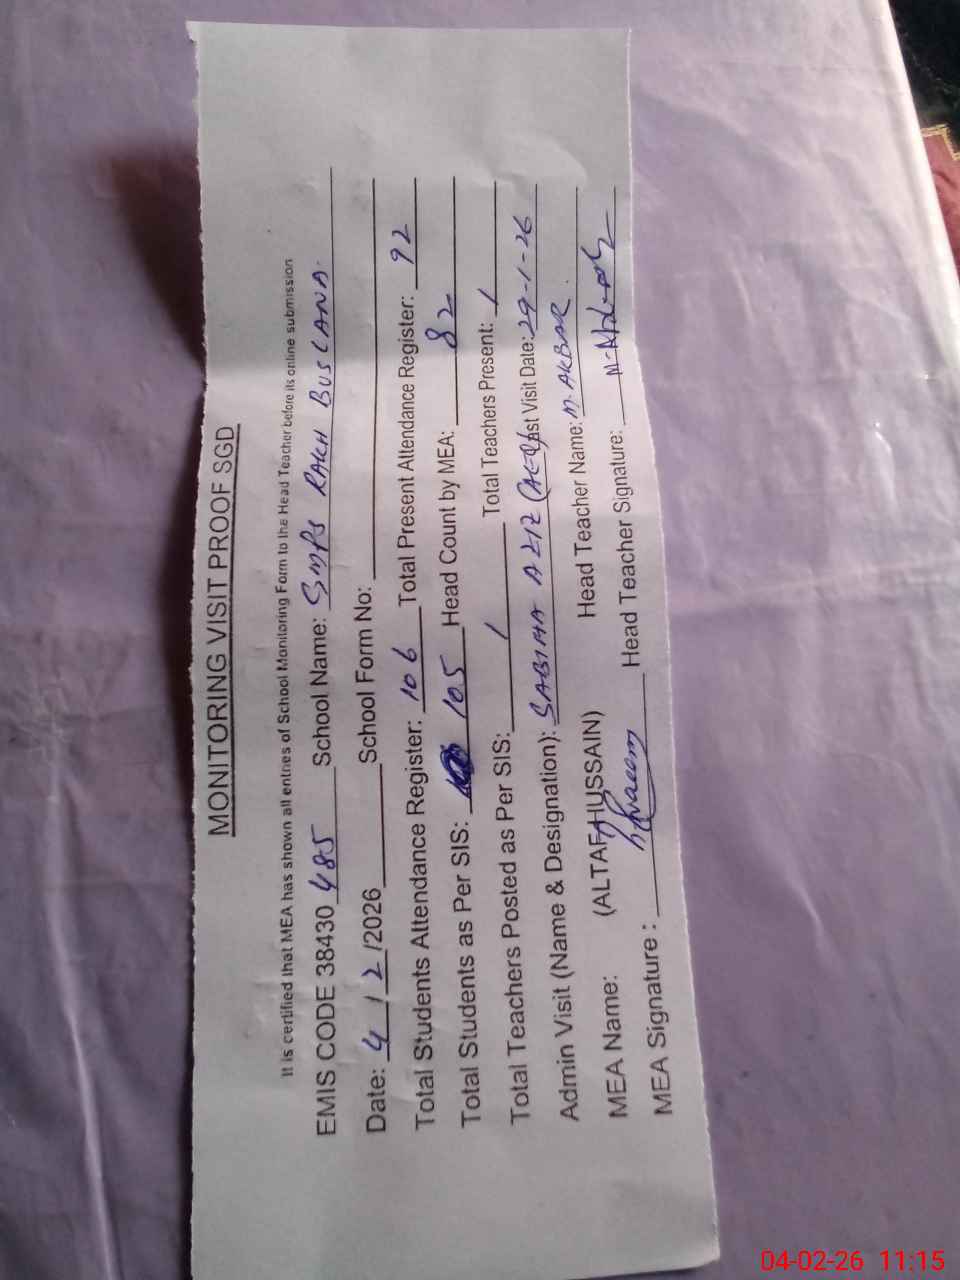 MONITORING VISIT PROOF SGD
It is certified that MEA has shown all entries of School Monitoring Form to the Head Teacher before its online submission
EMIS CODE 38430 485 School Name: SMPS RAKH BUSLANA.
Date: 4/2/2026 School Form No:
Total Students Attendance Register: 106 Total Present Attendance Register: 92
Total Students as Per SIS: 105 Head Count by MEA: 82
Total Teachers Posted as Per SIS: 1 Total Teachers Present: 1
Admin Visit (Name & Designation): SABIHA AZIZ Last Visit Date: 29-1-26
MEA Name: (ALTAF HUSSAIN) Head Teacher Name: M. AKBAR.
MEA Signature: Head Teacher Signature:
04-02-26 11:15